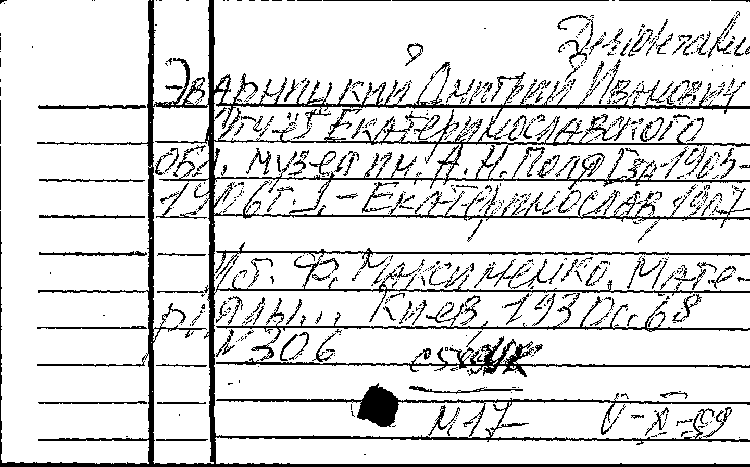 Эварницкий Дмитрий Иванович
Отчёт Екатеринославского
обл. музея им. А. Н. Поля [за 1905-
1906 г.]. - Екатеринослав, 1907
Об. Ф. Максименко. Мате-
риялы... Киев, 1930 с. 68
№ 306
М 17